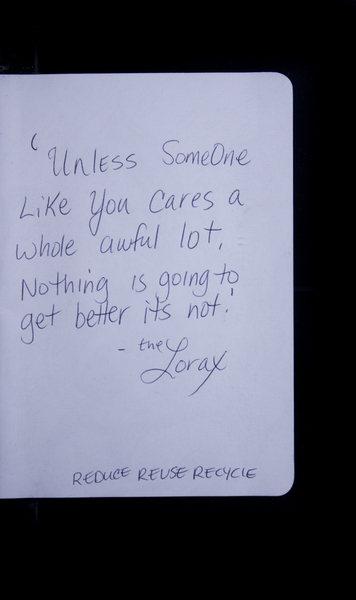 'Unless SomeOne
Like You Cares a
whole awful lot,
Nothing is going to
get better it's not.'
- the Lorax
REDUCE REUSE RECYCLE